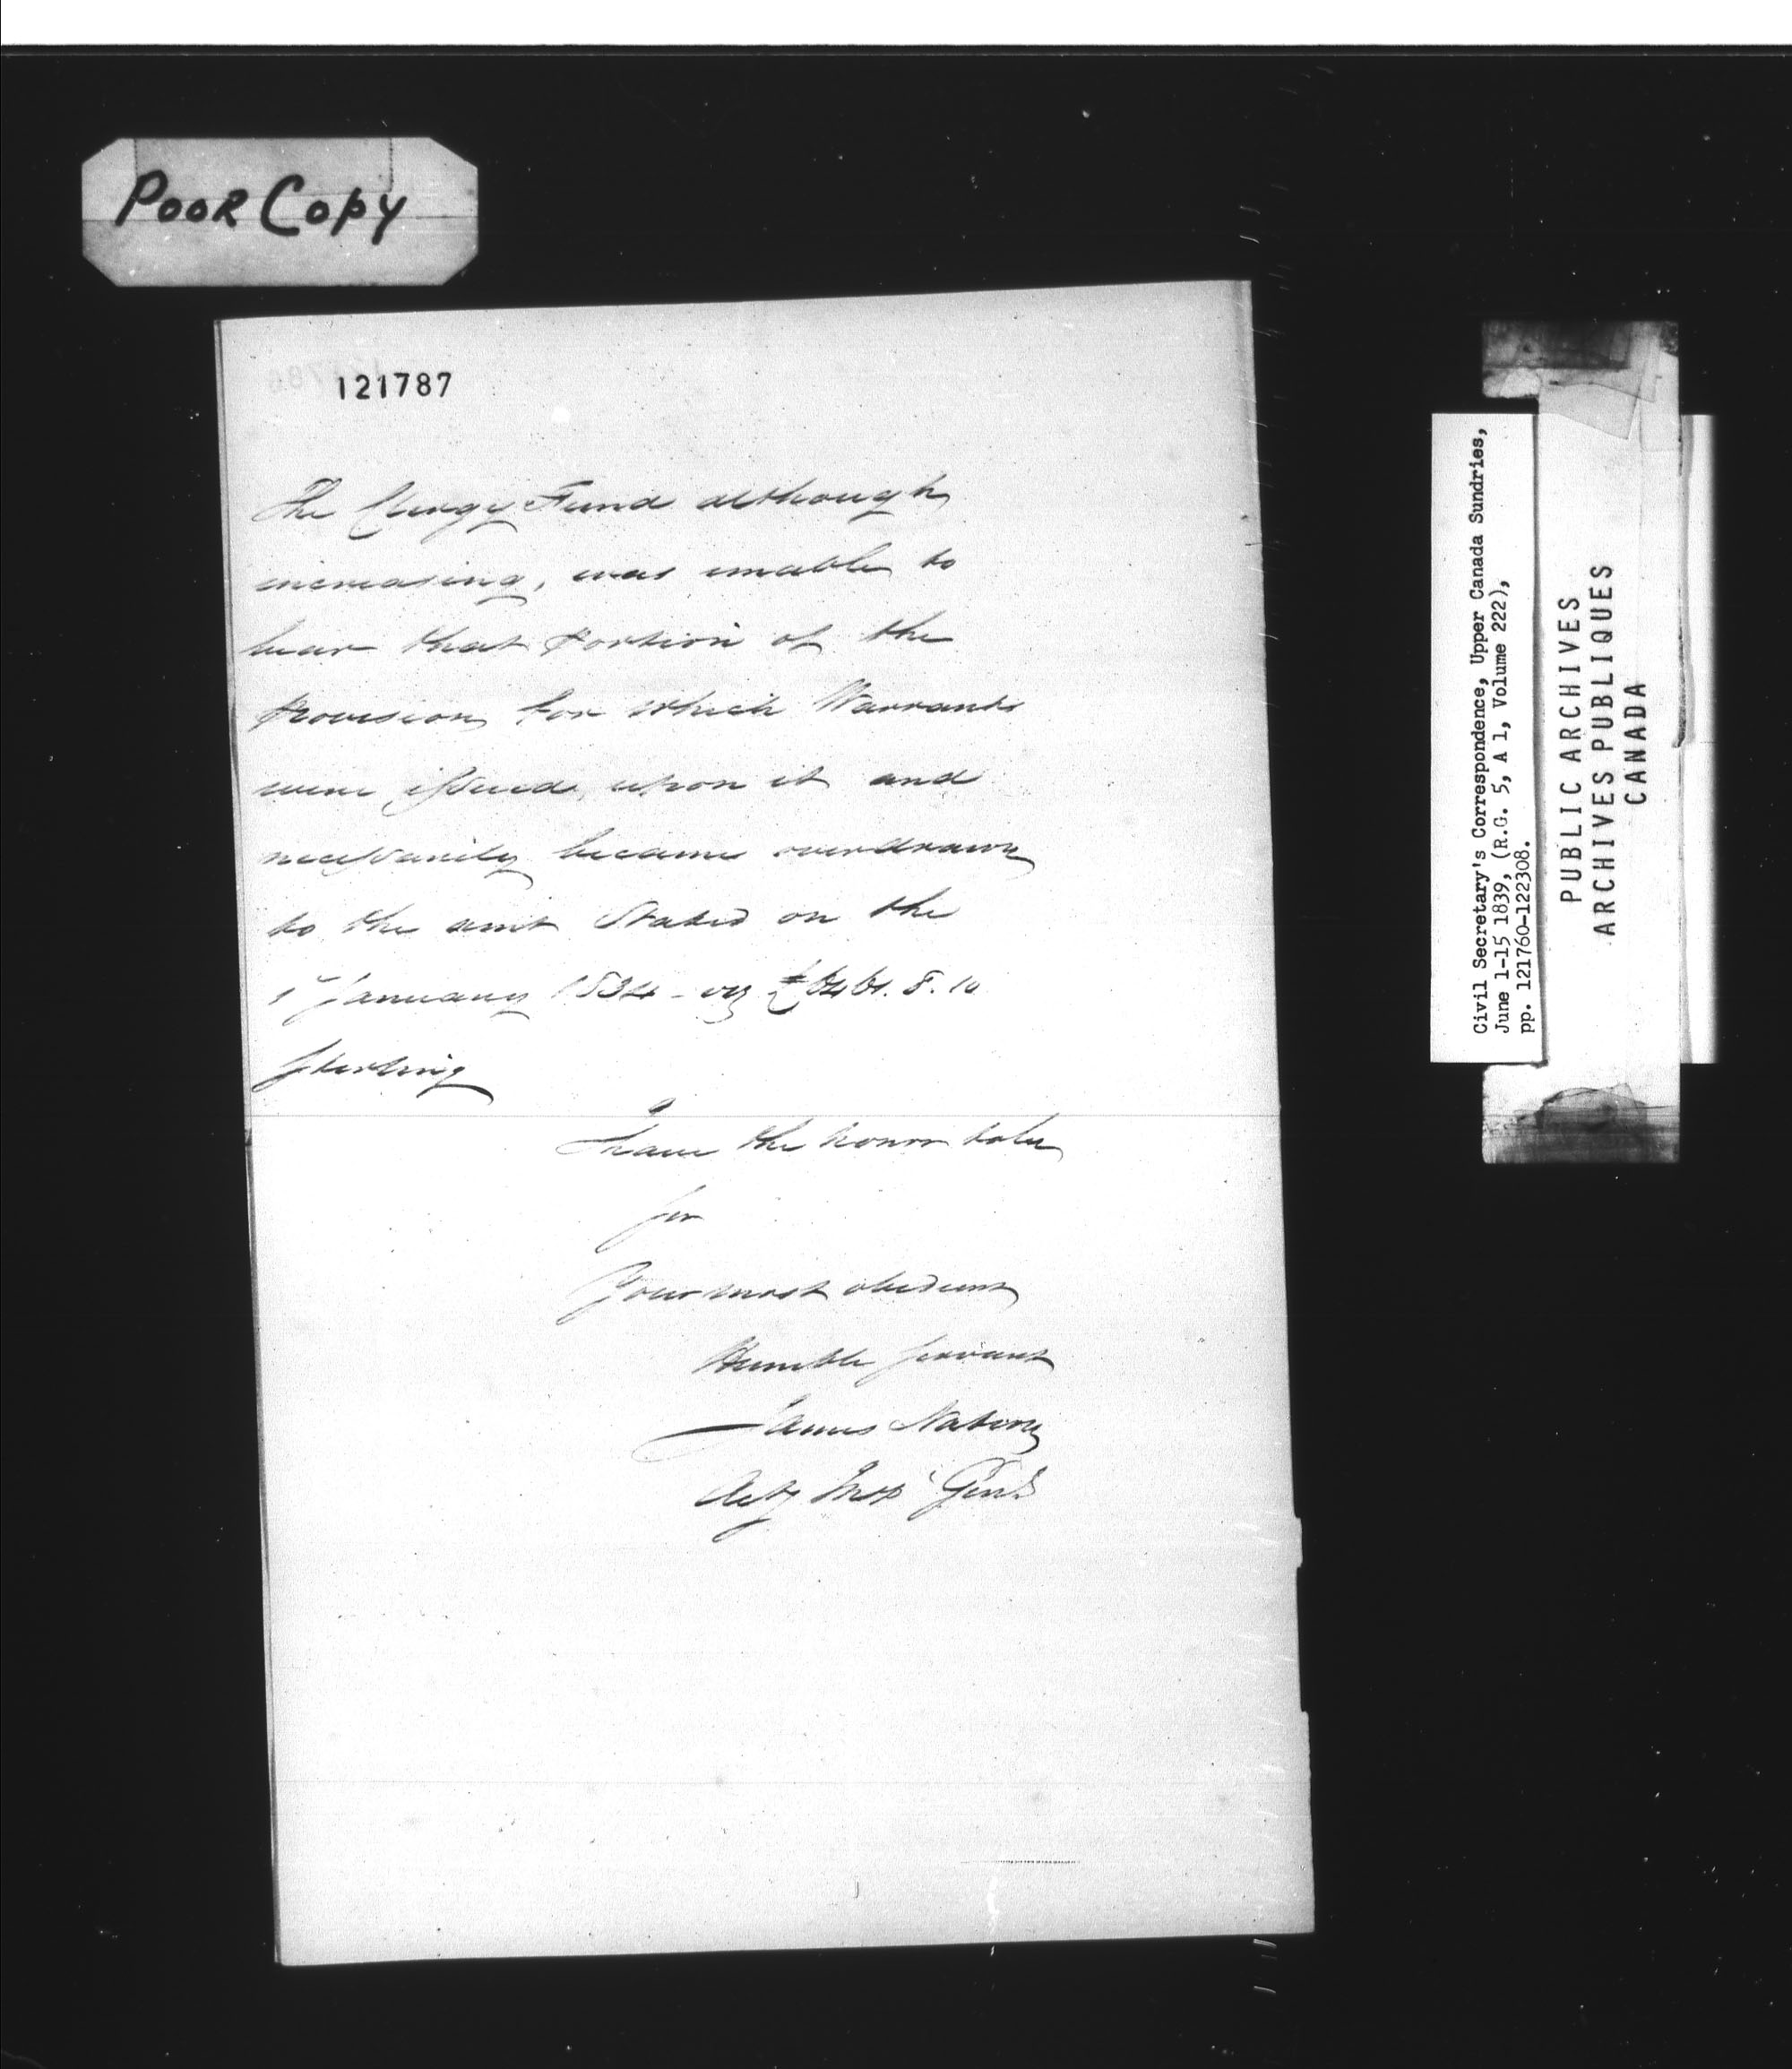 POOR COPY
121787
The Clergy Fund although
increasing, was unable to
bear that portion of the
provision for which Warrants
were issued upon it and
necessarily became overdrawn
to the amt Stated on the
1st January 1834 - viz £ 8. 10
Sterling
I have the honor to be
Sir
Your most obedient
Humble Servant
James Nation
Actg Insp Genl
Civil Secretary's Correspondence, Upper Canada Sundries,
June 1-15 1839, (R.G. 5, A 1, Volume 222),
pp. 121760-122308.
PUBLIC ARCHIVES
ARCHIVES PUBLIQUES
CANADA